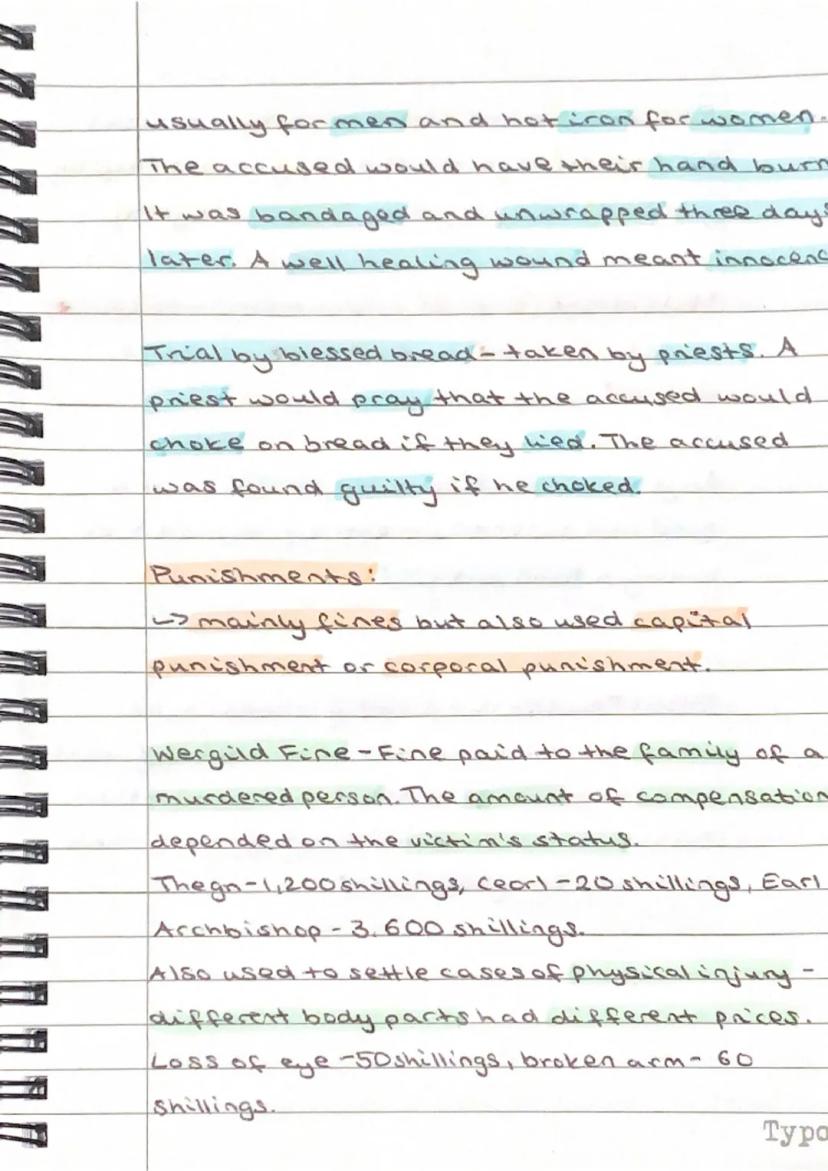 usually for men and hot iron for women.
The accused would have their hand burn
It was bandaged and unwrapped three days
later. A well healing wound meant innocenc
Trial by blessed bread - taken by priests. A
priest would pray that the accused would
choke on bread if they lied. The accused
was found guilty if he choked.
Punishments:
→ mainly fines but also used capital
punishment or corporal punishment.
Wergild Fine - Fine paid to the family of a
murdered person. The amount of compensation
depended on the victim's status.
Thegn - 1,200 shillings, Ceorl - 20 shillings, Earl
Archbishop - 3.600 shillings.
Also used to settle cases of physical injury -
different body parts had different prices.
Loss of eye - 50 shillings, broken arm - 60
shillings.
Typo